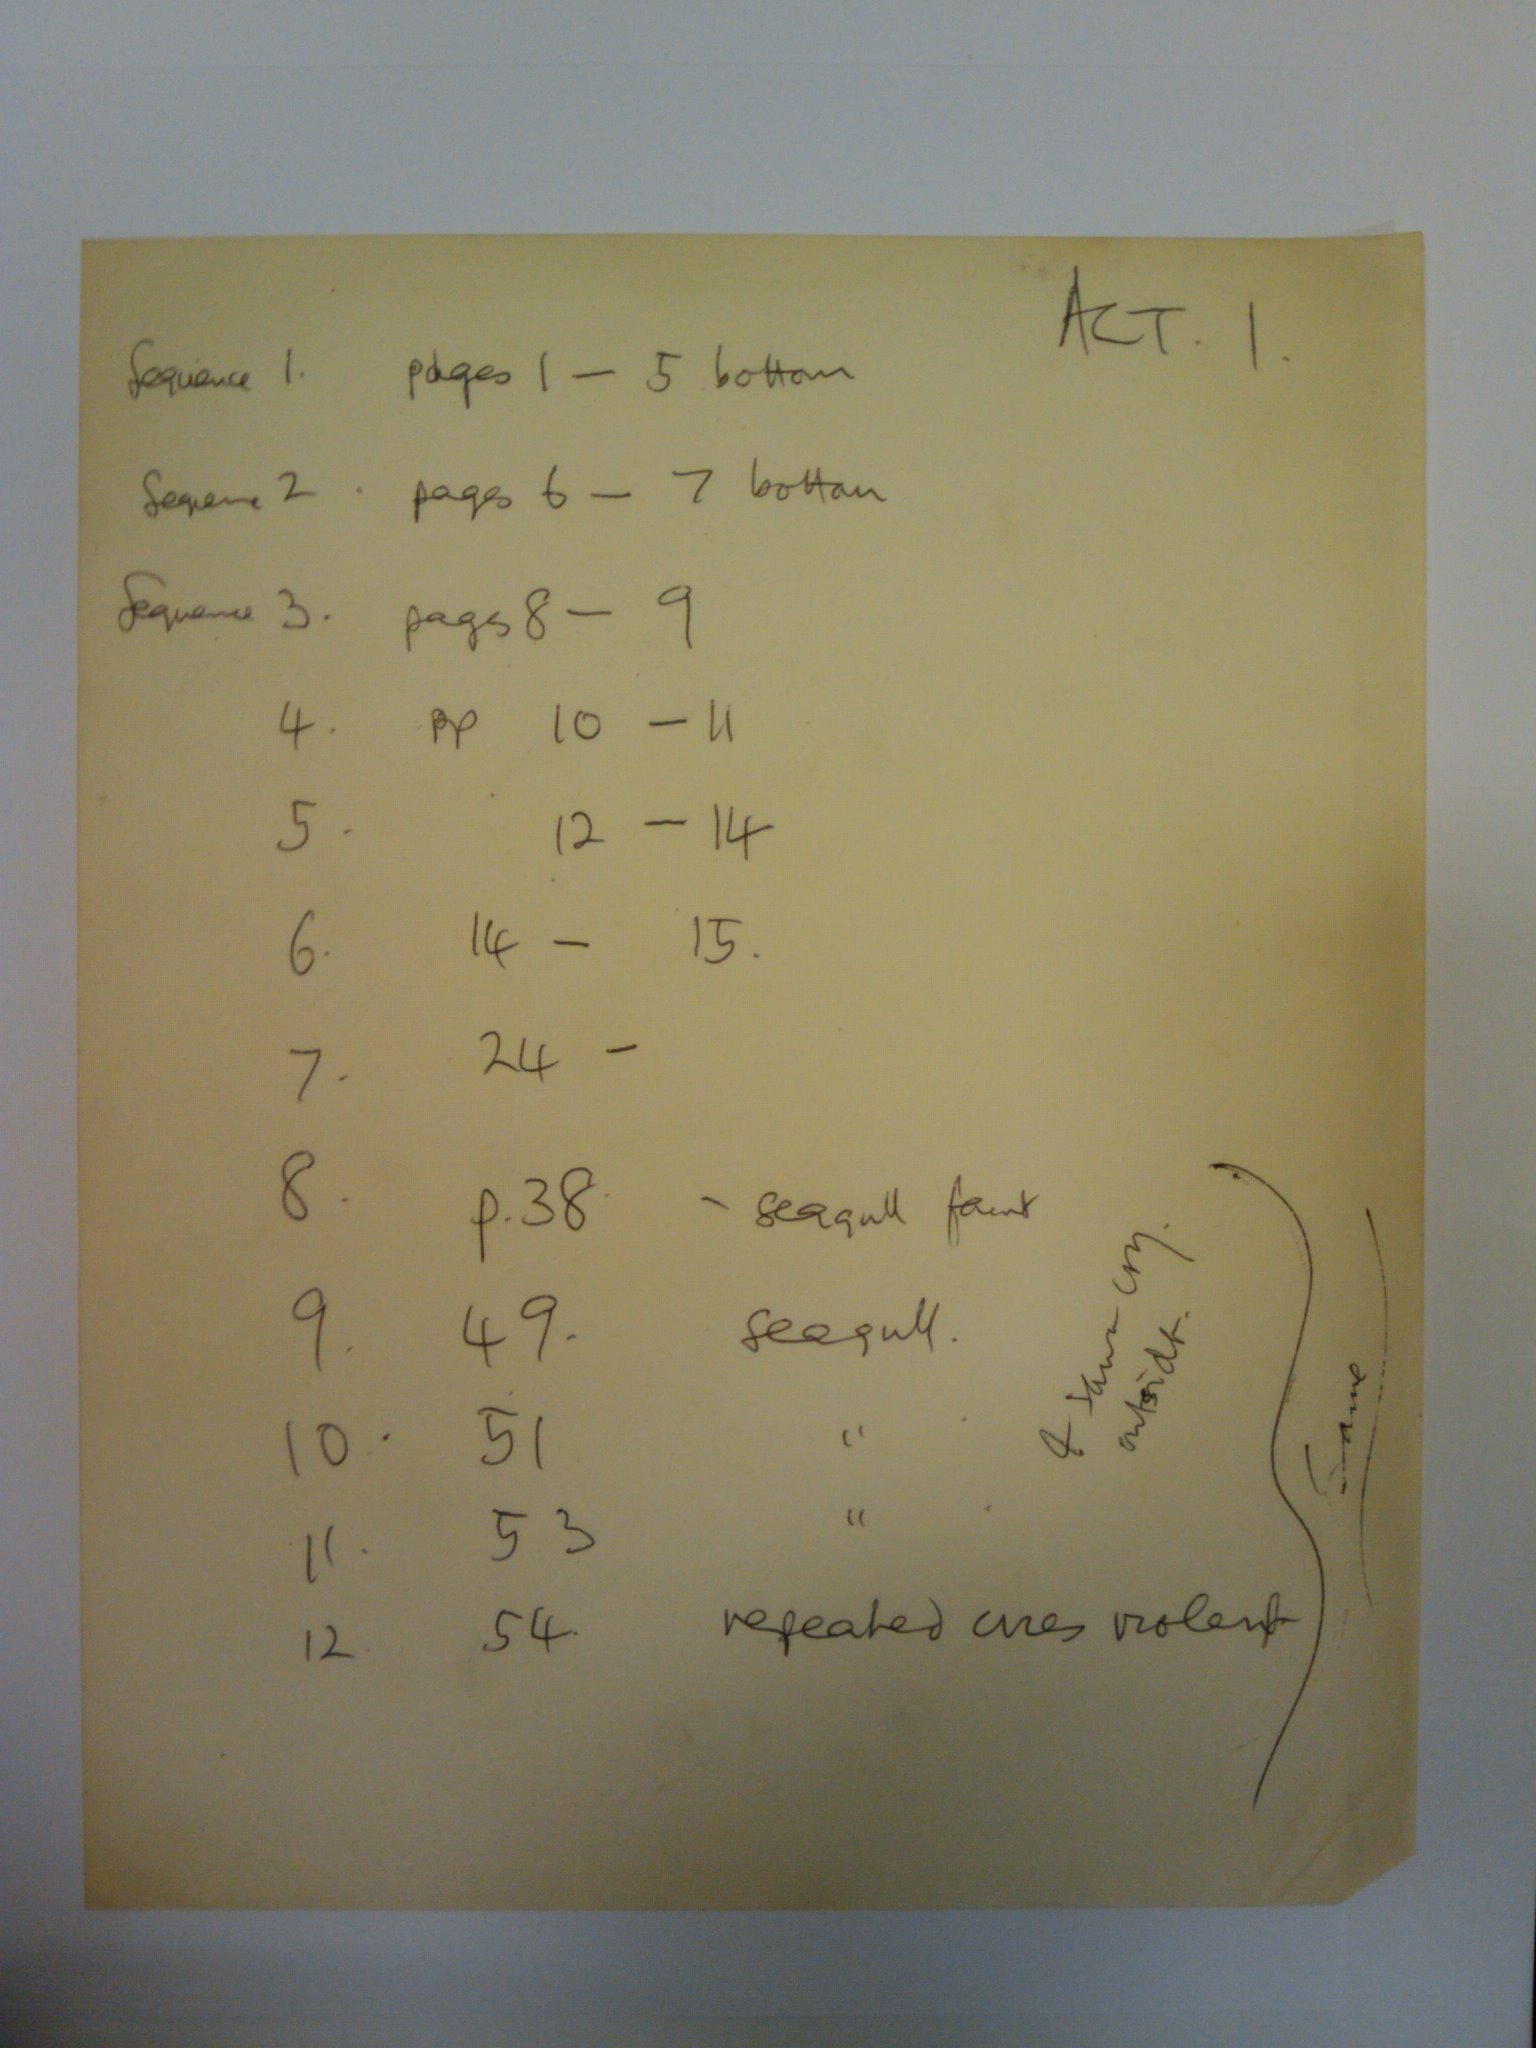 ACT. 1.
Sequence 1. pages 1 — 5 bottom
Sequence 2. pages 6 — 7 bottom
Sequence 3. pages 8 — 9
4. pp 10 — 11
5. 12 — 14
6. 14 — 15.
7. 24 —
8. p.38 - seagull faint
9. 49. seagull.
10. 51 "
11. 53 "
12. 54. repeated cries violent
& same cry.
outside.